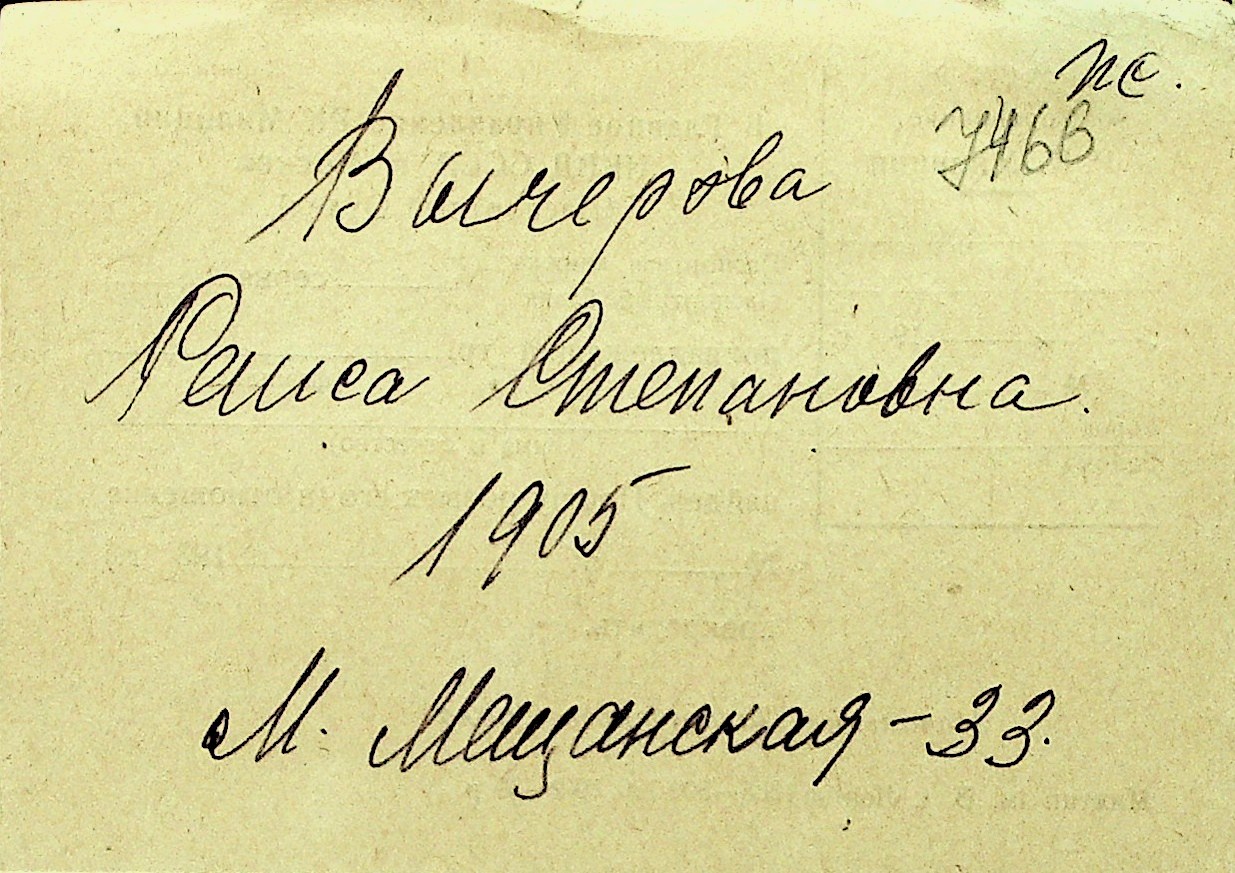 пс.
746в
Вычерова
Раиса Степановна.
1905
М. Мещанская - 33.